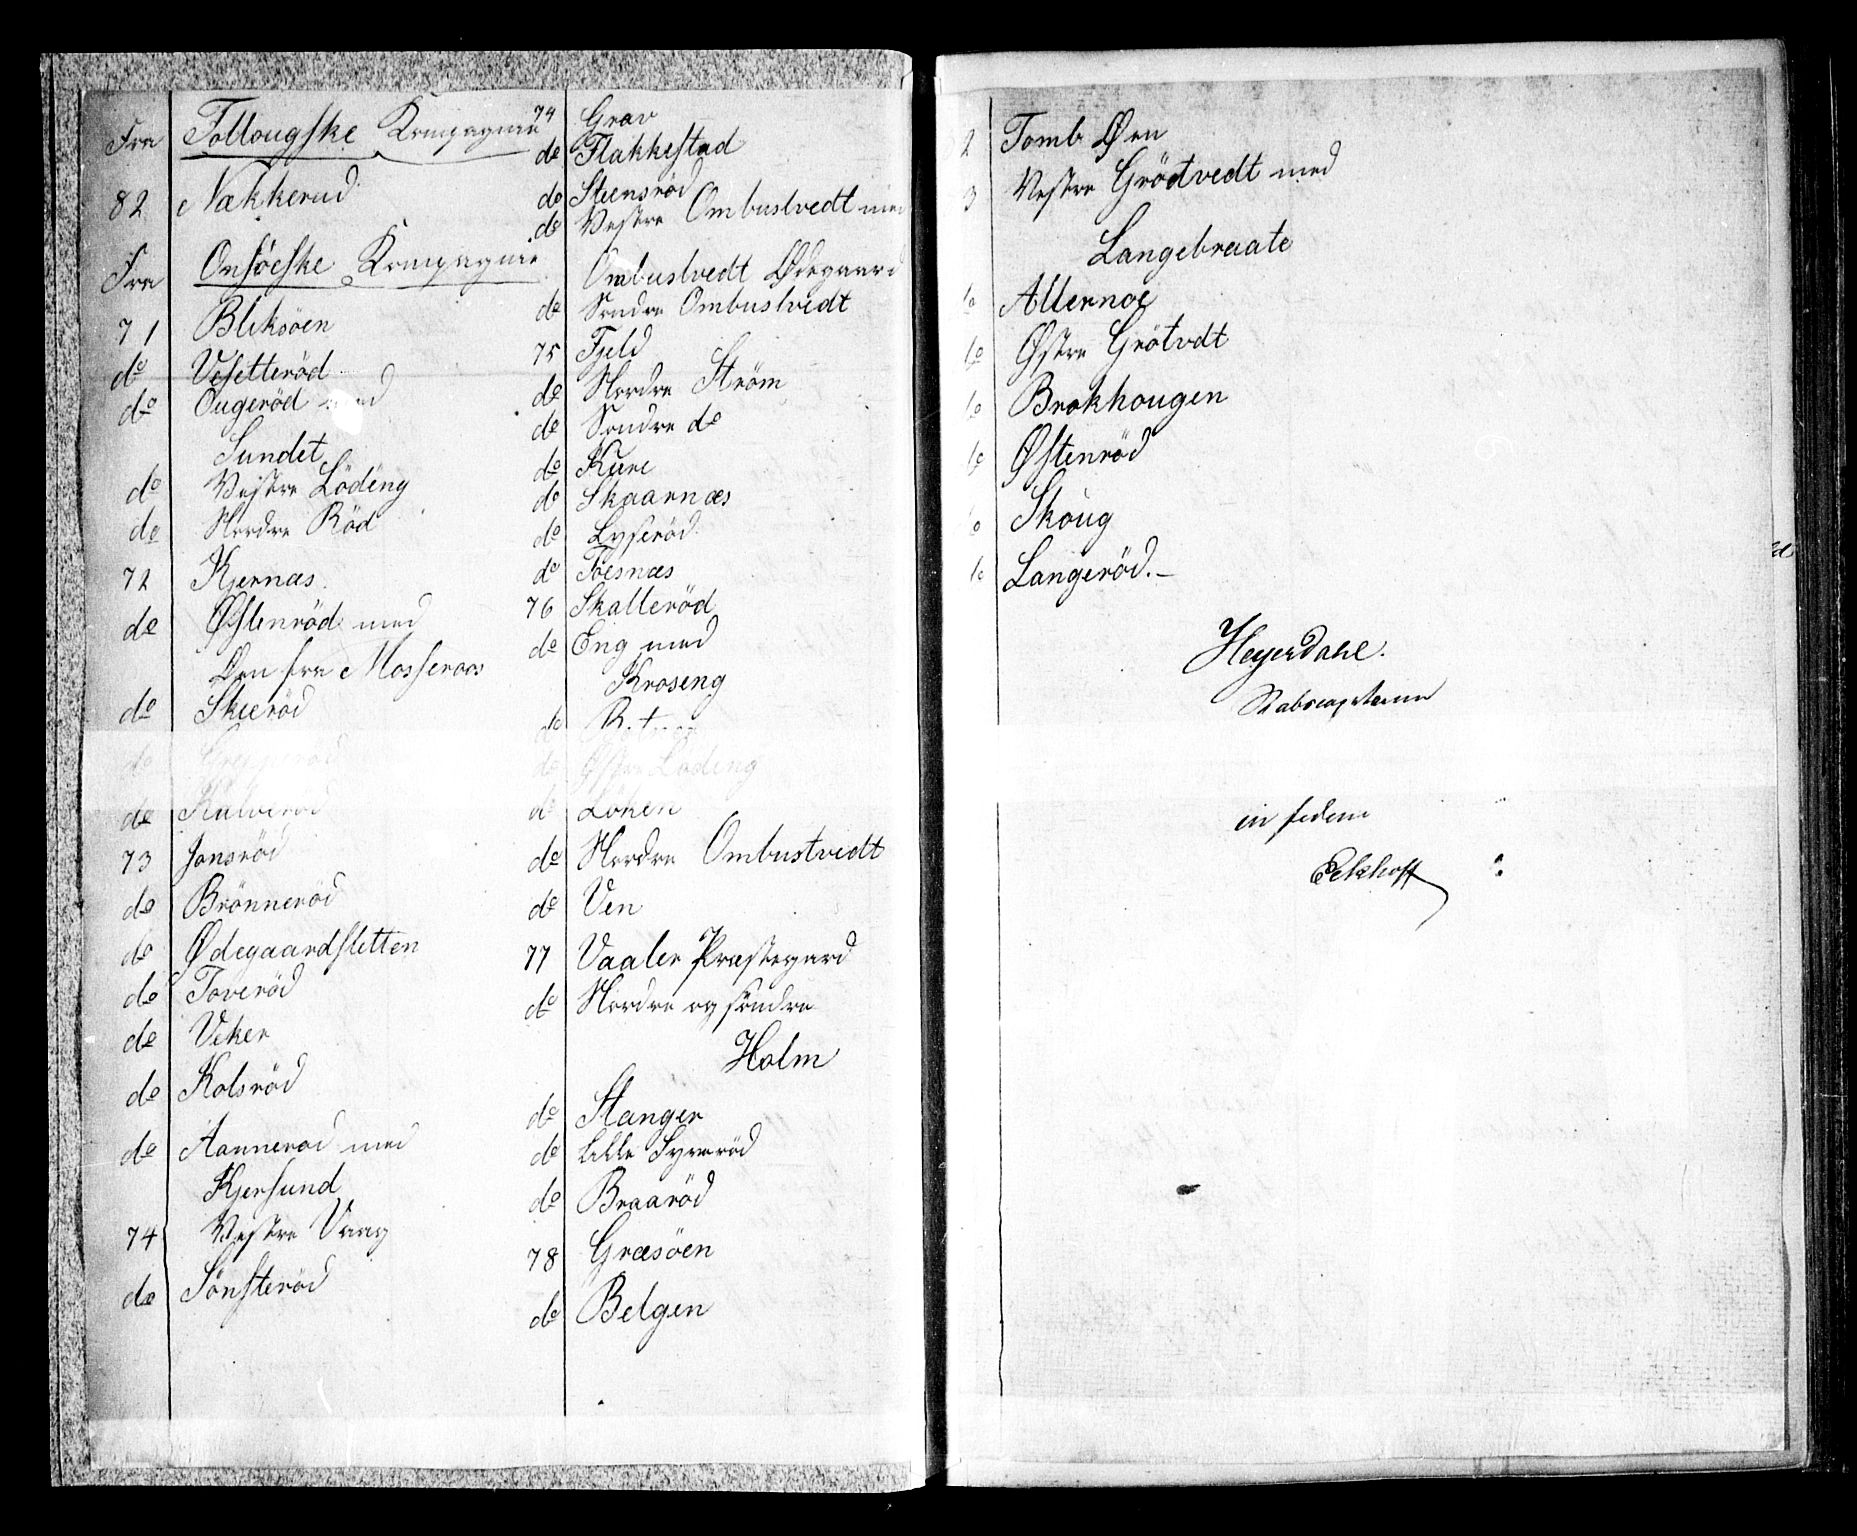 Fra Follougske Kompagnie
82 Nækkerud
Fra Onsöeske Kompagnie
71 Bliksöen
do Vesetteröd
do Ougeröd med
Sundet
do Vestre Löding
do Nordre Röd
72 Kjernæs
do Østenröd med
Øen fra Mosseraas
do Skieröd
do
do Kalveröd
73 Jonsröd
do Brönneröd
do Ødegaardsletten
do Toveröd
do Veker
do Kolsröd
do Aanneröd med
Kjersund
74 Vestre Vaag
do Sönsteröd
74 Grav
do Flakkestad
do Steensröd
do Vestre Ombustvedt med
Ombustvedt Ødegaard
do Söndre Ombustvedt
75 Fjeld
do Nordre Ström
do Söndre do
do Kure
do Skaarnæs
do Lyseröd
do Töesnæs
76 Skalleröd
do Eng med
Kroseng
do
do Østre Löding
do Löken
do Nordre Ombustvedt
do Ven
77 Vaaler Præstegard
do Nordre og söndre
Holm
do Stanger
do Lille Syveröd
do Braaröd
78 Græsöen
do Belgen
2 Tomb Øen
3 Vestre Grödtvedt med
Langebraate
do Allernoe
do Østre Grötvdt
do Brokhougen
do Østenröd
do Skoug
do Langeröd.-
Heyerdahl.
Stabscapitaine
in fidem
Eckhoff